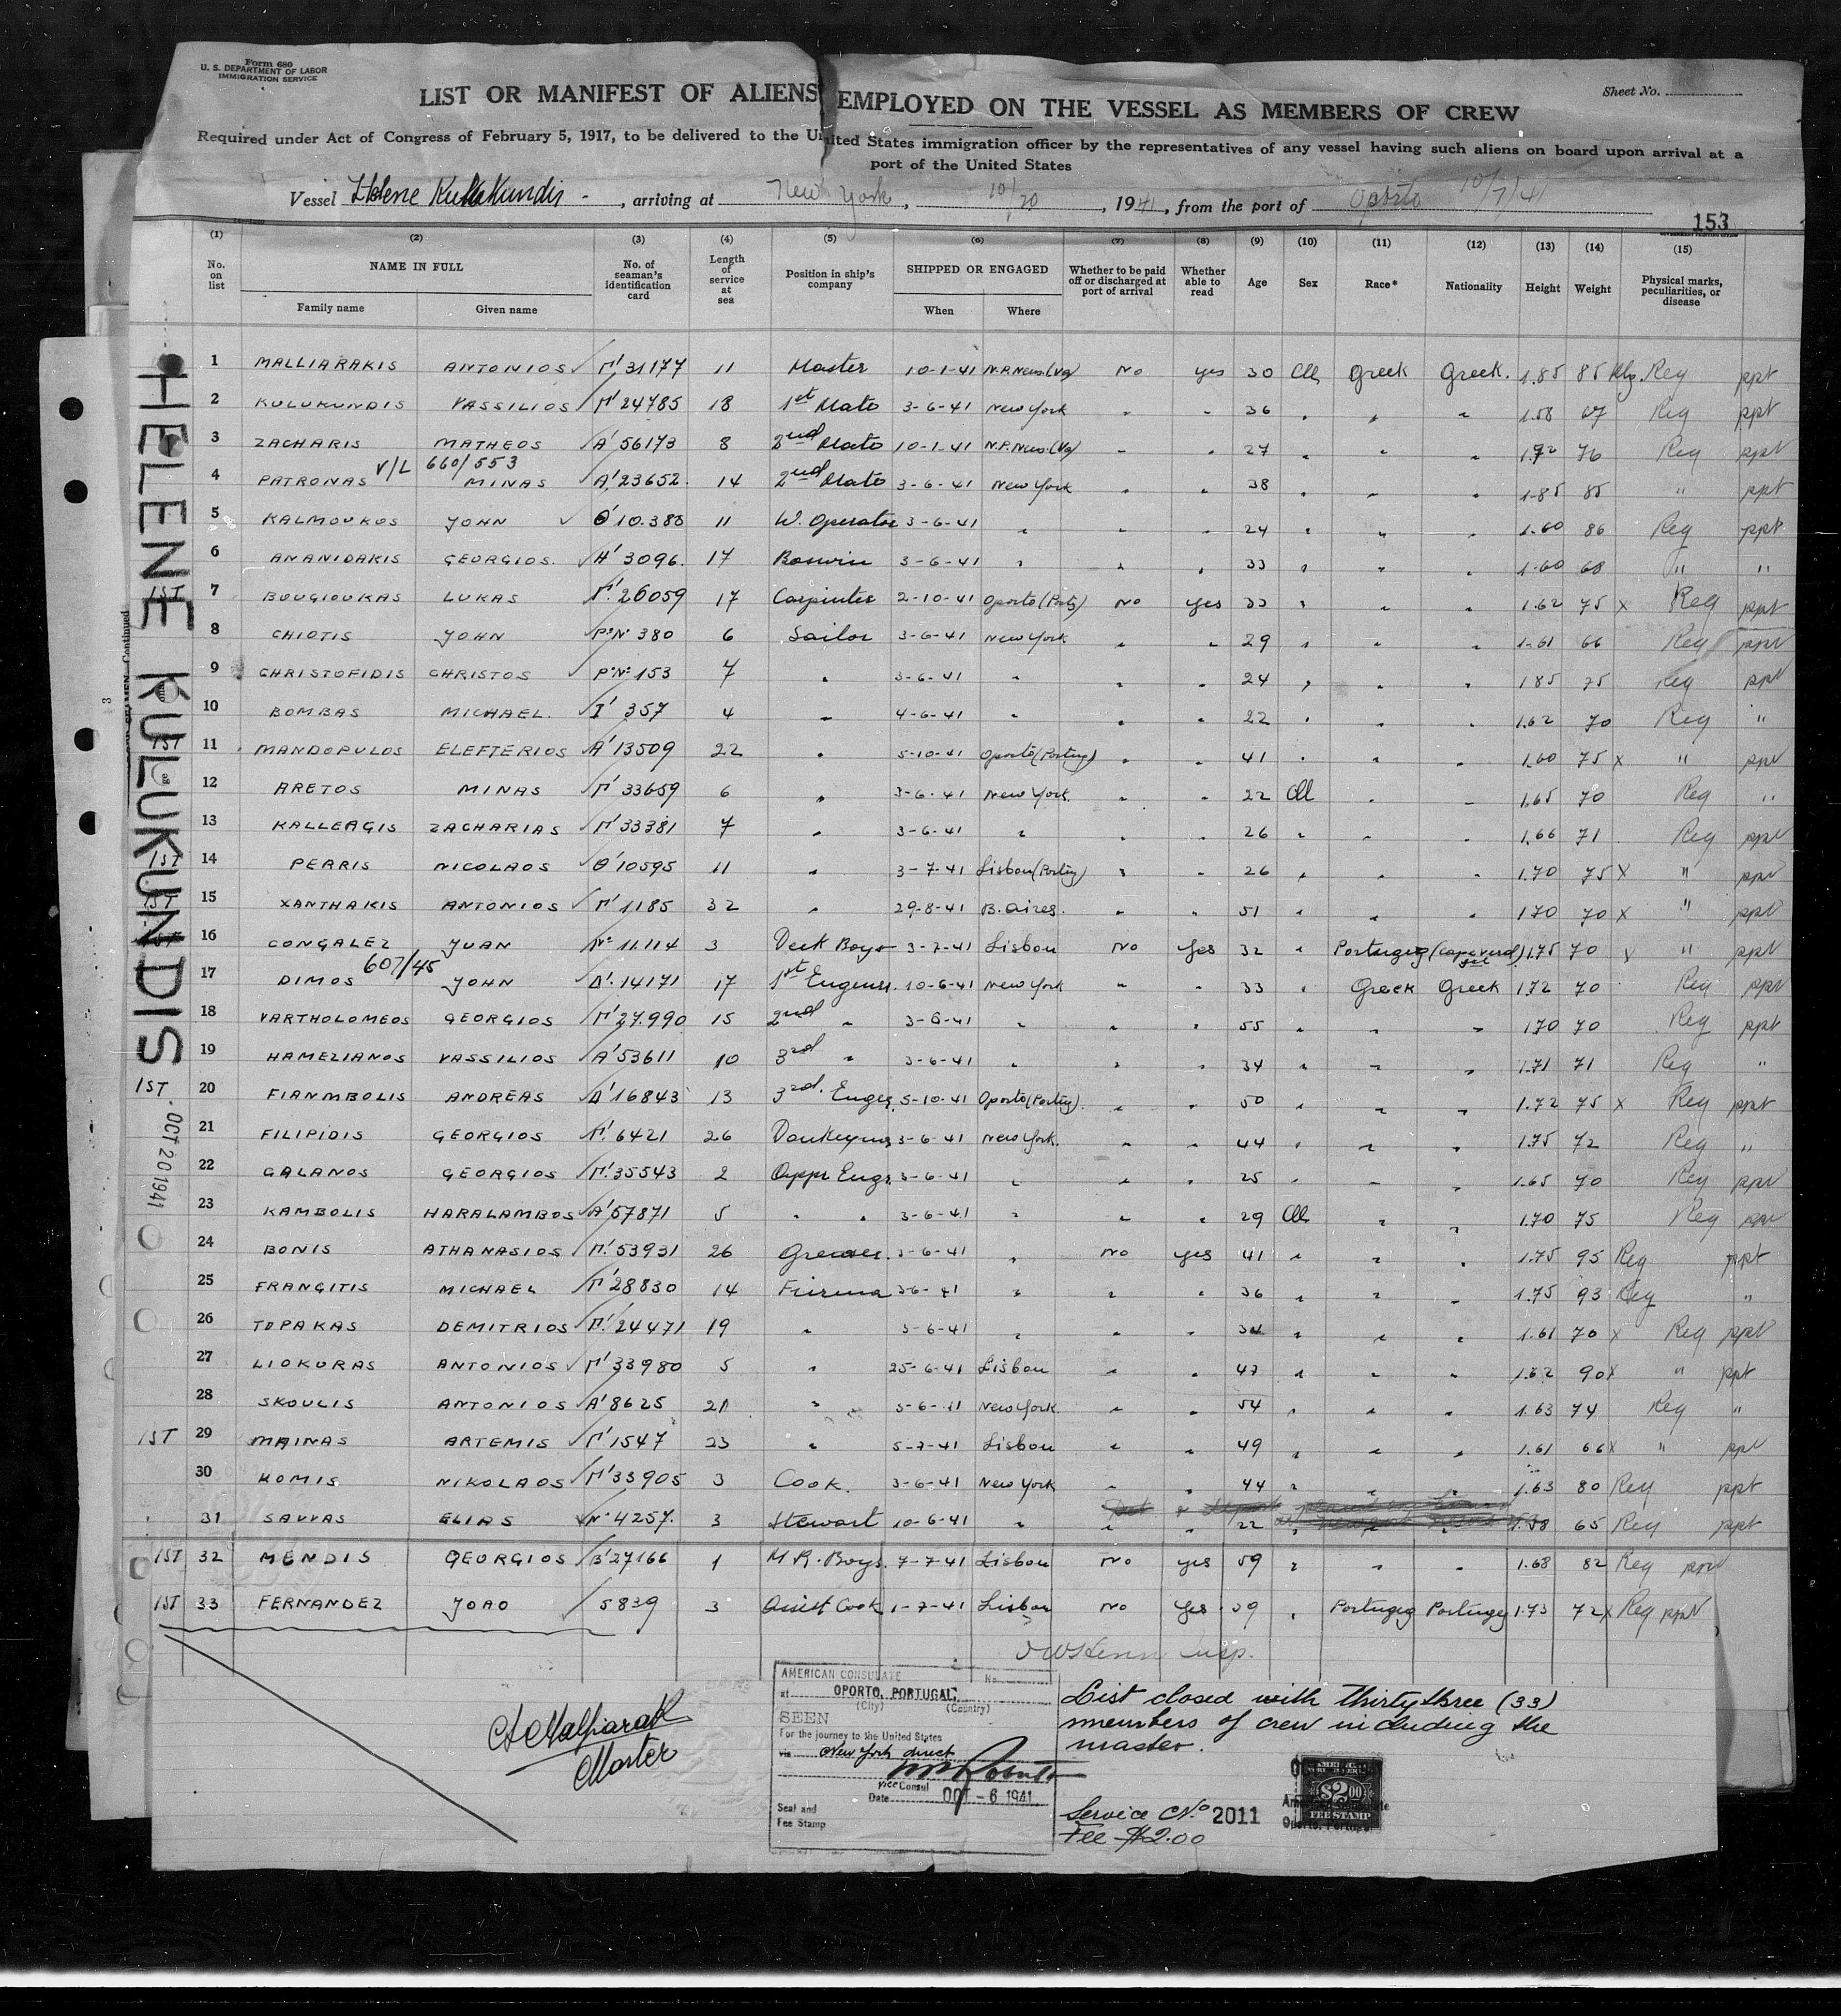 Form 680
U. S. DEPARTMENT OF LABOR
IMMIGRATION SERVICE
Sheet No.
LIST OR MANIFEST OF ALIENS EMPLOYED ON THE VESSEL AS MEMBERS OF CREW
Required under Act of Congress of February 5, 1917, to be delivered to the United States immigration officer by the representatives of any vessel having such aliens on board upon arrival at a
port of the United States
Vessel Helene Kulukundis, arriving at New York, 10/20, 1941, from the port of Oporto 10/7/41
153
(1) (2) (3) (4) (5) (6) (7) (8) (9) (10) (11) (12) (13) (14) (15)
No. on list NAME IN FULL Family name Given name No. of seaman's identification card Length of service at sea Position in ship's company SHIPPED OR ENGAGED When Where Whether to be paid off or discharged at port of arrival Whether able to read Age Sex Race* Nationality Height Weight Physical marks, peculiarities, or disease
HELENE KULUKUNDIS
1 MALLIARAKIS ANTONIOS Γ' 31177 11 Master 10-1-41 N.P.News.(Va) No yes 30 M Greek Greek. 1.85 85 Klg. Reg ppt
2 KULUKUNDIS VASSILIOS Γ' 24785 18 1st Mate 3-6-41 New York " " 36 " " " 1.58 67 Reg ppt
3 ZACHARIS MATHEOS A' 56173 8 2nd Mate 10-1-41 N.P.News.(Va) " " 27 " " " 1.72 76 Reg ppt
V/L 660/553
4 PATRONAS MINAS A' 23652. 14 2nd Mate 3-6-41 New York " " 38 " " " 1.85 85 " ppt
5 KALMOUKOS JOHN Θ' 10.388 11 W. Operator 3-6-41 " " " 24 " " " 1.60 86 Reg ppt
6 ANANIDAKIS GEORGIOS. H' 3096. 17 Boswin 3-6-41 " " " 33 " " " 1.60 68 " "
1ST 7 BOUGIOUKAS LUKAS Γ'. 26059 17 Carpinter 2-10-41 Oporto (Portg) No yes 33 " " " 1.62 75 x Reg ppt
8 CHIOTIS JOHN P°N° 380 6 Sailor 3-6-41 New York " " 29 " " " 1.61 66 Reg ppt
9 CHRISTOFIDIS CHRISTOS P°N° 153 7 " 3-6-41 " " " 24 " " " 1.85 75 Reg ppt
10 BOMBAS MICHAEL. I' 357 4 " 4-6-41 " " " 22 " " " 1.62 70 Reg "
1ST 11 MANDOPULOS ELEFTERIOS A' 13509 22 " 5-10-41 Oporto (Portug) " " 41 " " " 1.60 75 x " ppt
12 ARETOS MINAS Γ' 33659 6 " 3-6-41 New York " " 22 M " " 1.65 70 Reg "
13 KALLERGIS ZACHARIAS Γ' 33381 7 " 3-6-41 " " " 26 " " " 1.66 71 Reg ppt
1ST 14 PEARIS NICOLAOS Θ' 10595 11 " 3-7-41 Lisbon (Portug) " " 26 " " " 1.70 75 x " ppt
1ST 15 XANTHAKIS ANTONIOS Γ' 1185 32 " 29-8-41 B. Aires. " " 51 " " " 1.70 70 x " ppt
1ST 16 CONGALEZ JUAN N° 11.114 3 Deck Boys 3-7-41 Lisbon No yes 32 " Portugeg (Cape Verd.) 1.75 70 x " ppt
607/45
17 DIMOS JOHN Δ'. 14171 17 1st Engeners. 10-6-41 New York " " 33 " Greek Greek 1.72 70 Reg ppt
18 VARTHOLOMEOS GEORGIOS Γ' 27.990 15 2nd " 3-6-41 " " " 55 " " " 1.70 70 Reg ppt
19 HAMEZIANOS VASSILIOS A' 53611 10 3rd " 3-6-41 " " " 34 " " " 1.71 71 Reg "
1ST 20 FIANMBOLIS ANDREAS Δ' 16843 13 3rd. Enger. 5-10-41 Oporto (Portug). " " 50 " " " 1.72 75 x Reg ppt
OCT 20 1941
21 FILIPIDIS GEORGIOS Γ'. 6421 26 3-6-41 New York. " " 44 " " " 1.75 72 Reg "
22 GALANOS GEORGIOS Γ'. 35543 2 Appr Engr. 3-6-41 " " " 25 " " " 1.65 70 Reg ppt
23 KAMBOLIS HARALAMBOS A' 57871 5 " " 3-6-41 " " " 29 M " " 1.70 75 Reg ppt
24 BONIS ATHANASIOS Γ'. 53931 26 Greaser. 3-6-41 " No yes 41 " " " 1.75 95 Reg ppt
25 FRANGITIS MICHAEL Γ' 28830 14 Fireman 3-6-41 " " " 36 " " " 1.75 93 Reg "
26 TOPAKAS DEMITRIOS Γ'. 24471 19 " 3-6-41 " " " 34 " " " 1.61 70 x Reg ppt
27 LIOKURAS ANTONIOS Γ' 33980 5 " 25-6-41 Lisbon " " 47 " " " 1.62 90 x " ppt
28 SKOULIS ANTONIOS A' 8625 21 " 3-6-41 New York. " " 54 " " " 1.63 74 Reg "
1ST 29 MAINAS ARTEMIS Γ' 1547 23 " 5-7-41 Lisbon " " 49 " " " 1.61 66 x " ppt
30 KOMIS NIKOLAOS Γ' 33905 3 Cook. 3-6-41 New York " " 44 " " " 1.63 80 Reg ppt
31 SAVVAS ELIAS N° 4257. 3 Stewart 10-6-41 " " " 22 " " " 1.58 65 Reg ppt
1ST 32 MENDIS GEORGIOS B' 27166 1 M.R. Boys. 7-7-41 Lisbon No yes 59 " " " 1.68 82 Reg ppt
1ST 33 FERNANDEZ JOAO 5839 3 Assist Cook 1-7-41 Lisbon No yes 39 " Portugeg Portugeg 1.73 72 x Reg ppt
Insp.
AMERICAN CONSULATE No.
at OPORTO, PORTUGAL;
(City) (Country)
SEEN
For the journey to the United States
via New York direct
Vice Consul
Date OCT - 6 1941
Seal and
Fee Stamp
Master
List closed with thirty three (33)
members of crew including the
master.
Service No. 2011
Fee $2.00
$2.00
FEE STAMP
Oporto, Portugal